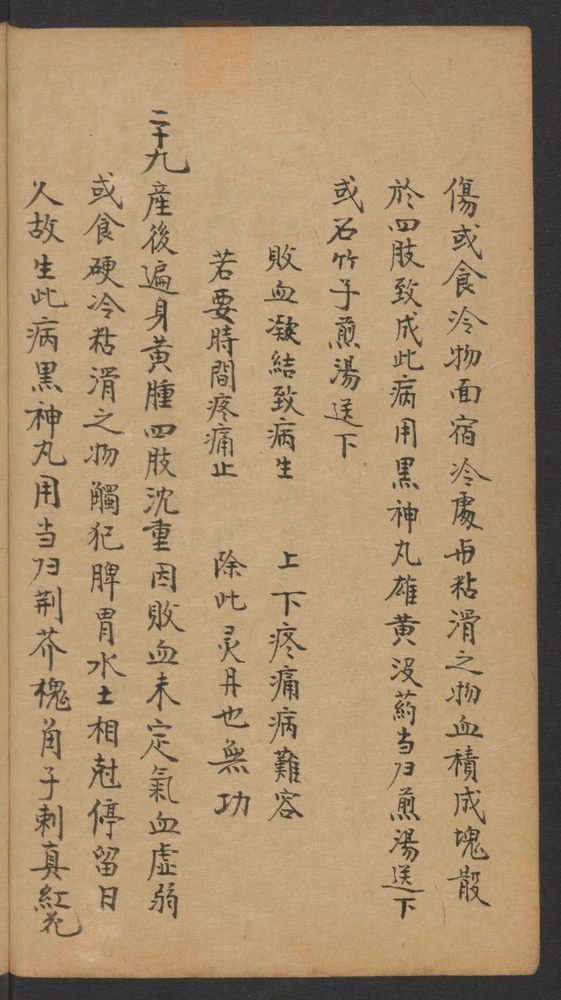 傷或食冷物面宿冷處与粘滑之物血積成塊散
於四肢致成此病用黑神丸雄黄没葯当归煎湯送下
或石竹子煎湯送下
敗血凝結致病生　上下疼痛病難容
若要時間疼痛止　除此灵丹也無功
二十九産後遍身黄腫四肢沈重因敗血未定氣血虚弱
或食硬冷粘滑之物觸犯脾胃水土相尅停留日
久故生此病黑神丸用当归荆芥槐角子刺真紅花